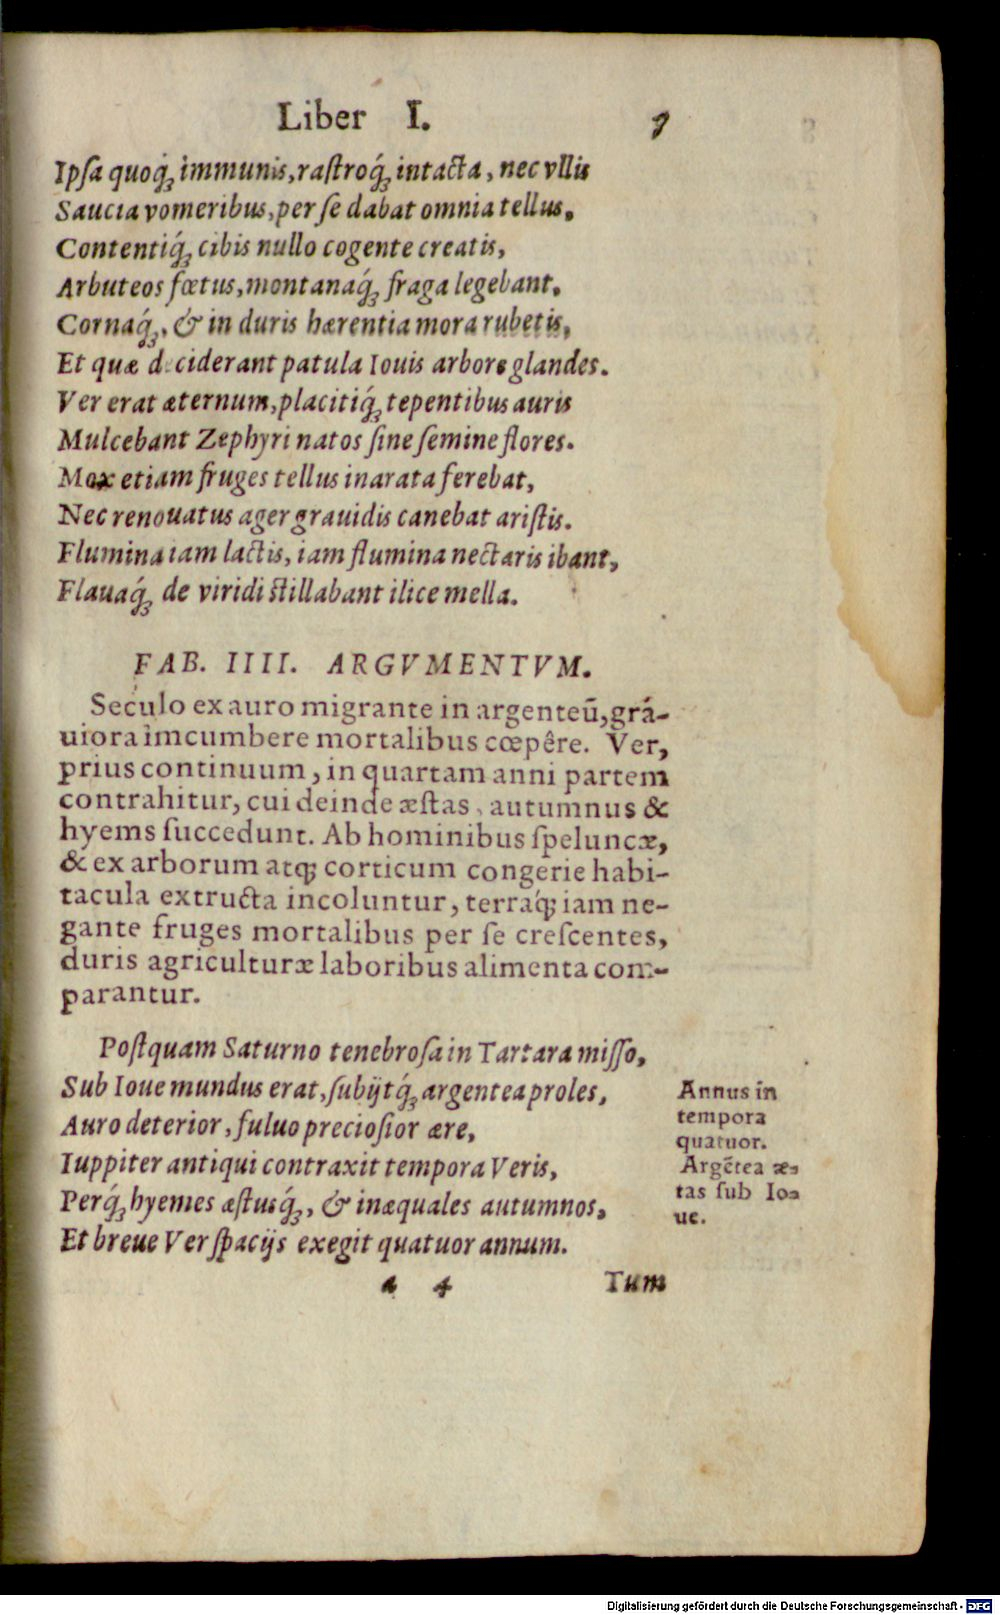 Liber I. 9
Ipſa quoq́; immunis, raſtroq́; intacta, nec vllis
Saucia vomeribus, per ſe dabat omnia tellus,
Contentiq́; cibis nullo cogente creatis,
Arbuteos fœtus, montanaq́; fraga legebant,
Cornaq́;, & in duris hærentia mora rubetis,
Et quæ deciderant patula Iouis arbore glandes.
Ver erat æternum, placitiq́; tepentibus auris
Mulcebant Zephyri natos ſine ſemine flores.
Mox etiam fruges tellus inarata ferebat,
Nec renouatus ager grauidis canebat ariſtis.
Flumina iam lactis, iam flumina nectaris ibant,
Flauaq́; de viridi ſtillabant ilice mella.
FAB. IIII. ARGVMENTVM.
Seculo ex auro migrante in argenteũ, grá-
uiora imcumbere mortalibus cœpêre. Ver,
prius continuum, in quartam anni partem
contrahitur, cui deinde æſtas, autumnus &
hyems ſuccedunt. Ab hominibus ſpeluncæ,
& ex arborum atq; corticum congerie habi-
tacula extructa incoluntur, terraq́; iam ne-
gante fruges mortalibus per ſe creſcentes,
duris agriculturæ laboribus alimenta com-
parantur.
Poſtquam Saturno tenebroſa in Tartara miſſo,
Sub Ioue mundus erat, ſubijtq́; argentea proles,
Auro deterior, fuluo precioſior ære,
Iuppiter antiqui contraxit tempora Veris,
Perq́; hyemes æſtusq́;, & inæquales autumnos,
Et breue Ver ſpacijs exegit quatuor annum.
Annus in
tempora
quatuor.
Argẽtea æ-
tas ſub Io-
ue.
a 4 Tum
Digitalisierung gefördert durch die Deutsche Forschungsgemeinschaft - DFG